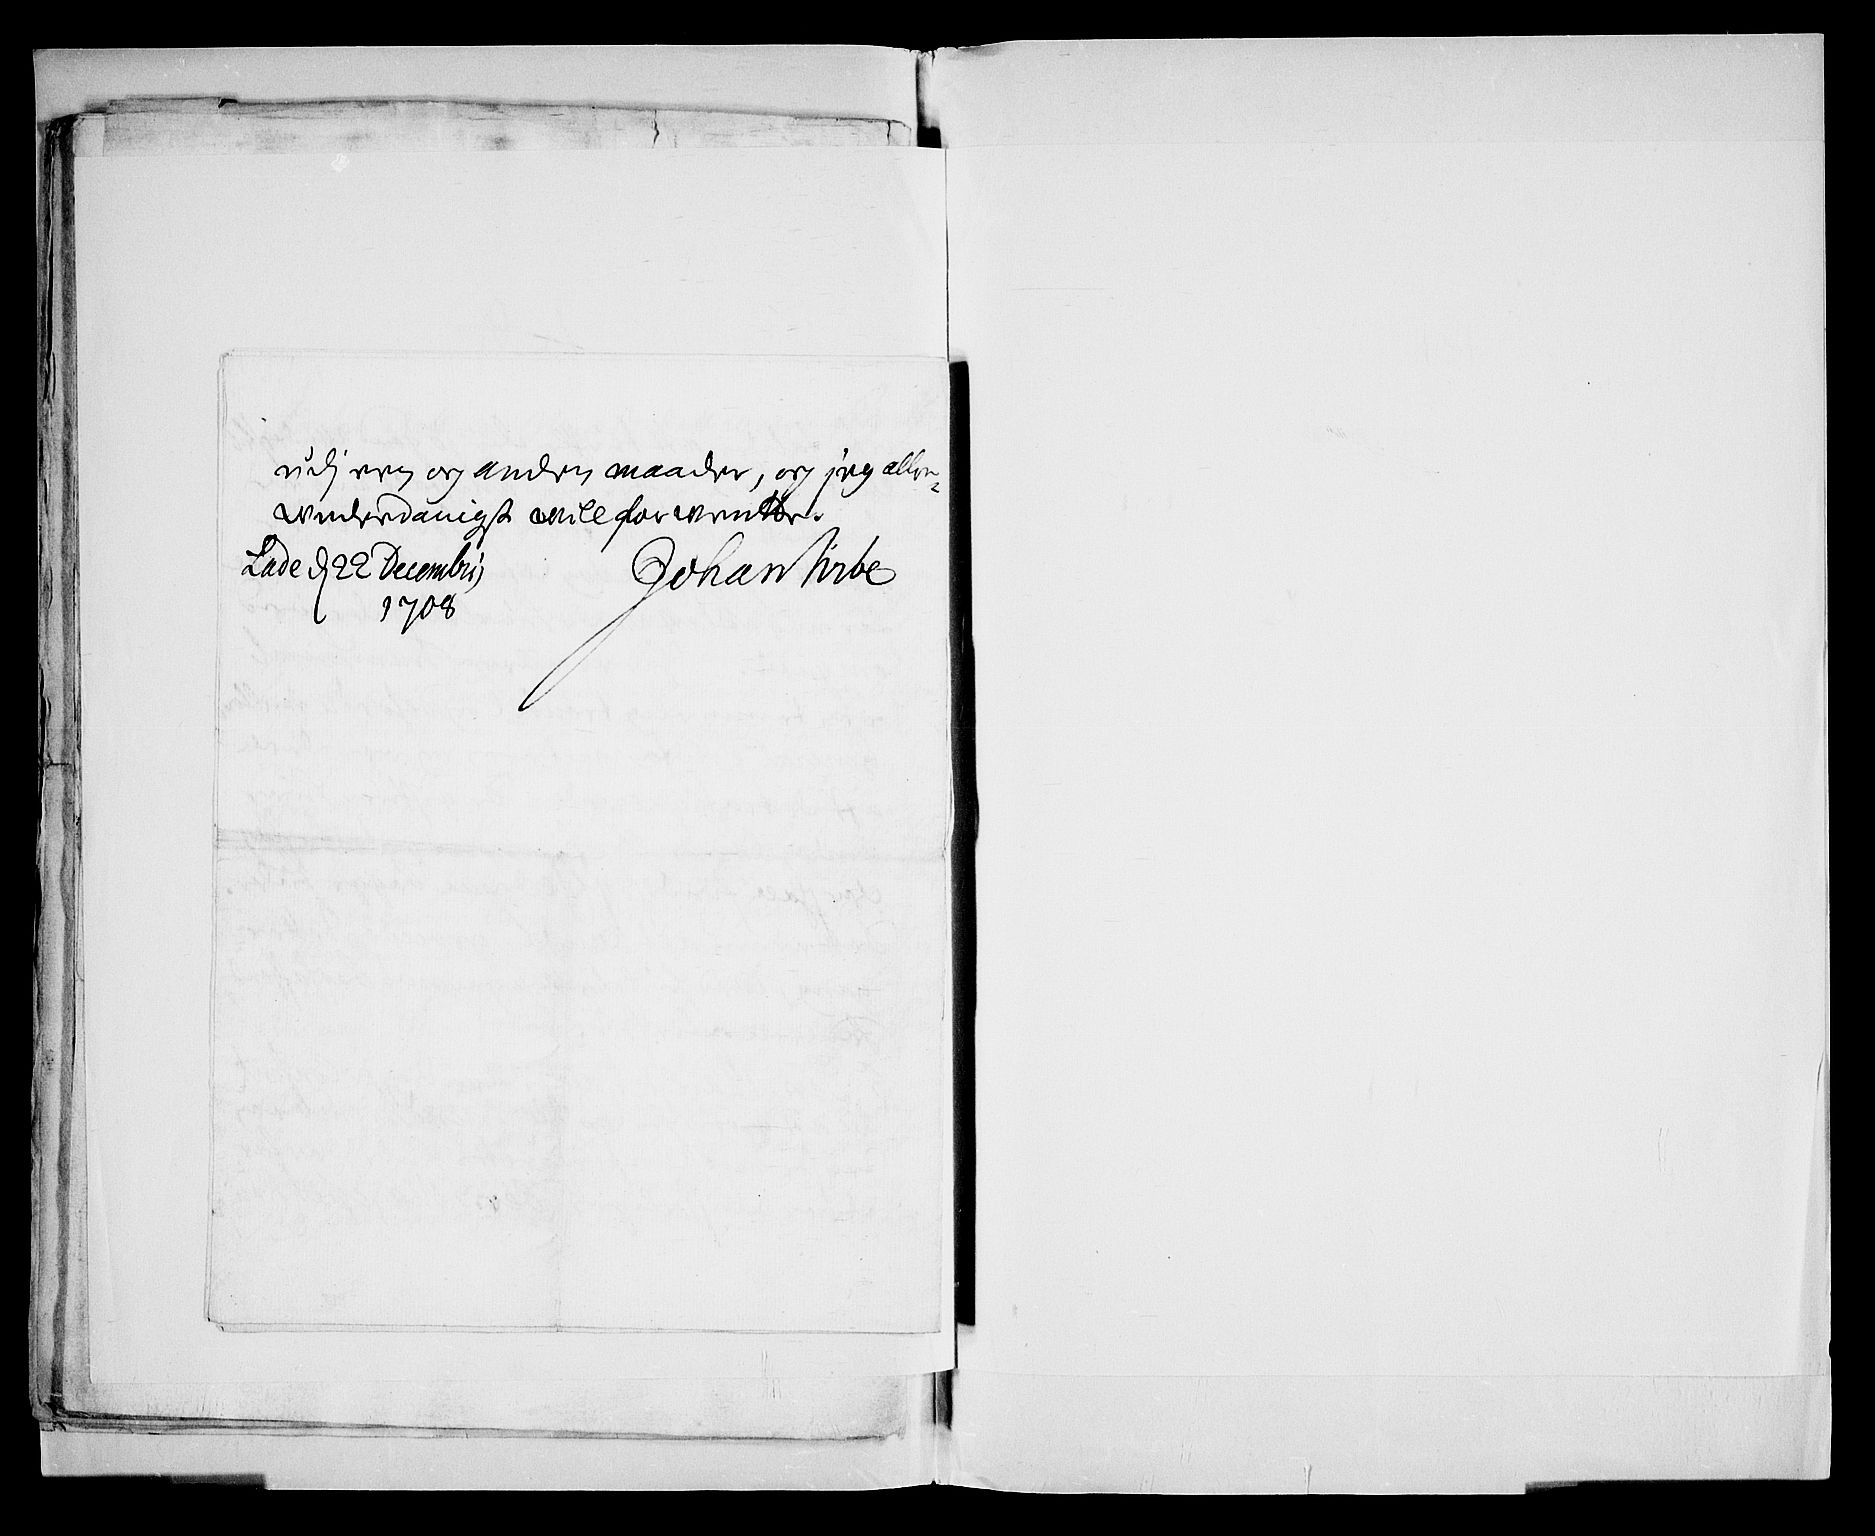 udj een og anden maader, og jeg aller-
underdanigst vill forvente.
Lade d 22 Decembris
1708
Johan Wibe